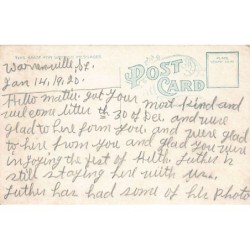 THIS SPACE FOR WRITING MESSAGES
POST CARD
Warnersville, St.
Jan 14, 1920.
Hello Mattie got your most kind and
welcome letter the 30 of Dec. and were
glad to here form you. and were glad
to here from you and glad you were
injoying the best of Helth. Luther is
still staying here with us.
Luther has had some of his photo